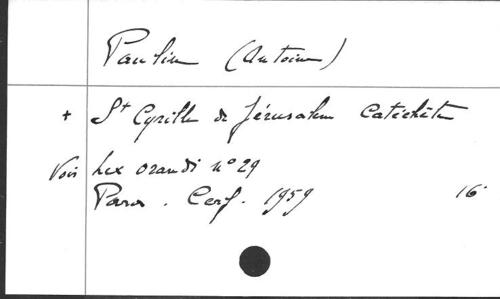 Paulin (Antoine)
+ St Cyrille de Jérusalem Catéchète
Voir Lex orandi n° 29
Paris. Cerf. 1959 16°